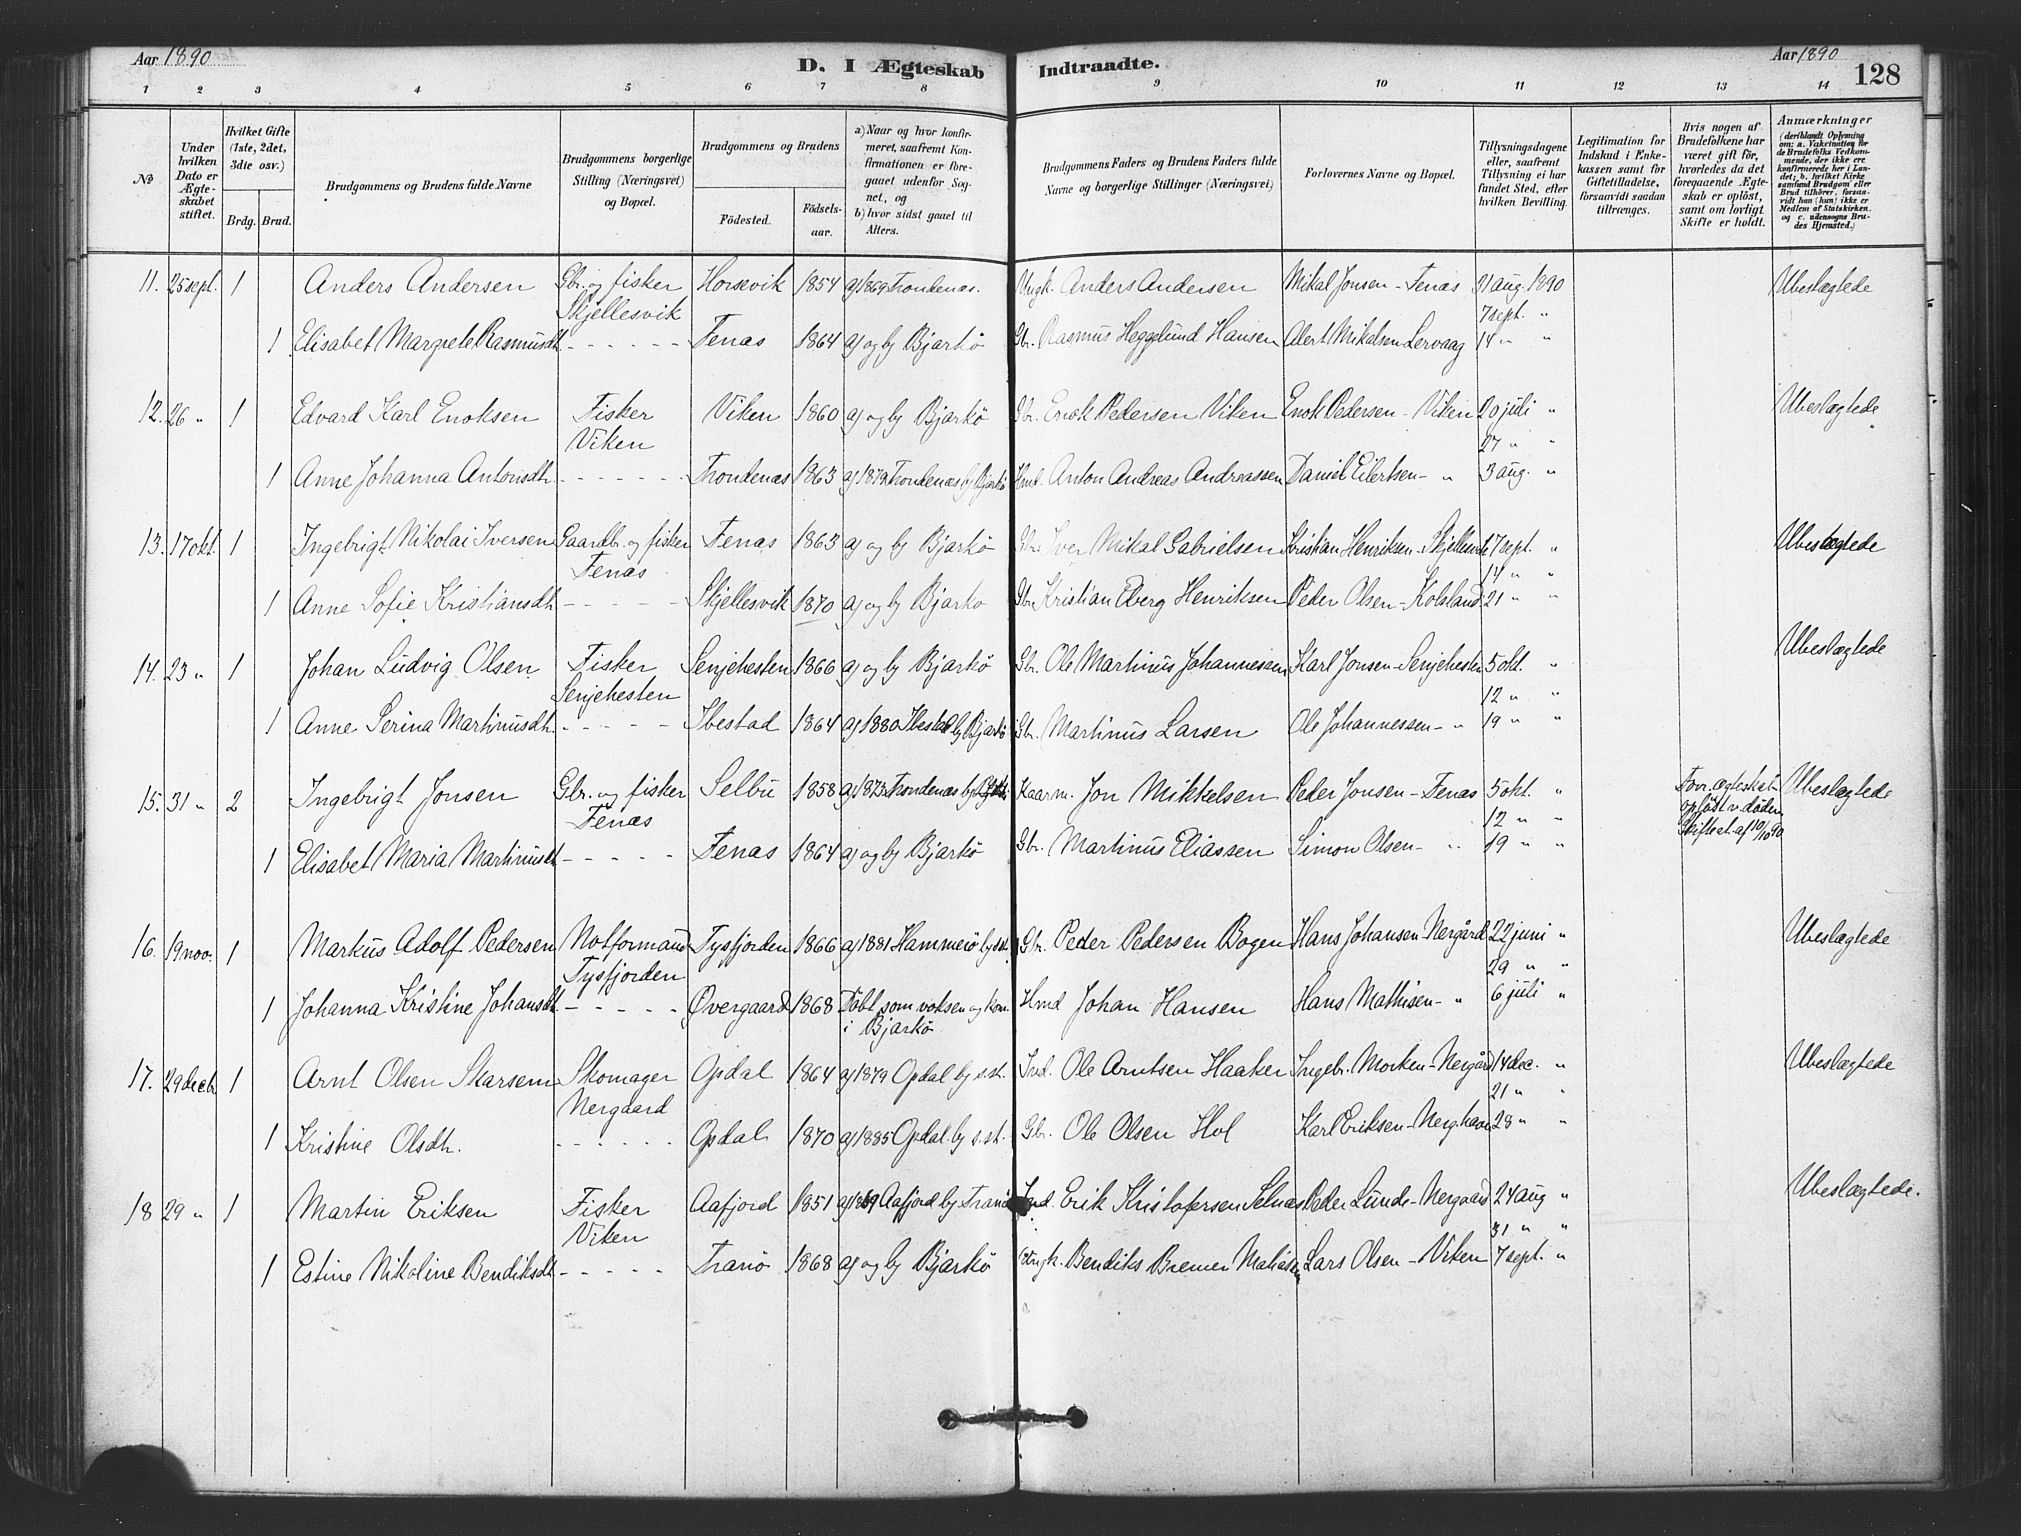 Aar 1890
D. I Ægteskab Indtraadte.
Aar 1890
128
1 2 3 4 5 6 7 8 9 10 11 12 13 14
No
Under hvilken Dato er Ægteskabet stiftet.
Hvilket Gifte (1ste, 2det, 3die osv.)
Brdg. Brud.
Brudgommens og Brudens fulde Navne
Brudgommens borgerlige Stilling (Næringsvei) og Bopæl.
Brudgommens og Brudens
Födested.
Födselsaar.
a) Naar og hvor konfirmeret, saafremt Konfirmationen er foregaaet udenfor Sognet, og
b) hvor sidst gaaet til Alters.
Brudgommens Faders og Brudens Faders fulde Navne og borgerlige Stillinger (Næringsvei)
Forlovernes Navne og Bopæl.
Tillysningsdagene eller, saafremt Tillysning ei har fundet Sted, efter hvilken Bevilling.
Legitimation for Indskud i Enkekassen samt for Giftetilladelse, forsaavidt saadan tiltrænges.
Hvis nogen af Brudefolkene har været gift för, hvorledes da det foregaaende Ægteskab er oplöst, samt om lovligt Skifte er holdt.
Anmærkninger (deriblandt Oplysning om: a. Vakcination for de Brudefolks Vedkommende, der ikke ere konfirmerede her i Landet; b. hvilket Kirkesamfund Brudgom eller Brud tilhörer, forsaavidt han (hun) ikke er Medlem af Statskirken, og c. udensogns Brudes Hjemsted.)
11. 25 sept. 1 Anders Andersen Gbr. og fisker Horsevik 1854 a) 1869 Trondenæs. Ungk. Anders Andersen Mikal Jonsen - Fenæs 31 aug. 1890 Ubeslægtede
Skjellesvik 7 sept. "
1 Elisabet Margrete Rasmusdt. - - - - - - Fenæs 1864 a) og b) Bjarkö Gbr. Rasmus Hegglund Hansen Alert Mikalsen Lervaag 14 " "
12. 26 " 1 Edvard Karl Enoksen Fisker Viken 1860 a) og b) Bjarkö Gbr. Enok Pedersen Viken Enok Pedersen - Viken 20 juli " Ubeslægtede
Viken 27 " "
1 Anne Johanna Antonsdt. - - - - - - Trondenæs 1863 a) 1879 Trondenæs b) Bjarkö Hmd. Anton Andreas Andreassen Daniel Eilertsen - " 3 aug. "
13. 17 okt. 1 Ingebrigt Nikolai Iversen Gaardb. og fisker Fenæs 1863 a) og b) Bjarkö Gbr. Iver Mikal Gabrielsen Kristian Henriksen - Skjellesvik 7 sept. " Ubeslægtede
Fenæs 14 " "
1 Anne Sofie Kristiansdt. - - - - - Skjellesvik 1870 a) og b) Bjarkö Gbr. Kristian Eberg Henriksen Peder Olsen - Kolsland 21 " "
14. 23 " 1 Johan Ludvig Olsen Fisker Senjehesten 1866 a) og b) Bjarkö Gbr. Ole Martinus Johannessen Karl Jonsen - Senjehesten 5 okt. " Ubeslægtede
Senjehesten 12 " "
1 Anne Serina Martinusdt. - - - - - Ibestad 1864 a) 1880 Ibestad b) Bjarkö Gbr. Martinus Larsen Ole Johannessen - " 19 " "
15. 31 " 2 Ingebrigt Jonsen Gbr. og fisker Selbu 1858 a) 1873 Trondenæs b) Bjarkö Kaarm. Jon Mikkelsen Peder Jonsen - Fenæs 5 okt. " Forr. ægteskab opløst v. døden Skifteat. af 10/10 90 Ubeslægtede
Fenæs 12 " "
1 Elisabet Maria Martinusdt. - - - - - Fenæs 1864 a) og b) Bjarkö Gbr. Martinus Eliassen Simon Olsen - " 19 " "
16. 19 nov. 1 Markus Adolf Pedersen Notformand Tysfjorden 1866 a) 1881 Hammerö b) s.st. Gbr. Peder Pedersen Bogen Hans Johansen - Nergård 22 juni " Ubeslægtede
Tysfjorden 29 " "
1 Johanna Kristine Johansdt. - - - - - Øvergaard 1868 Døbt som voksen og kon. Hmd Johan Hansen Hans Mathisen - " 6 juli "
i Bjarkö
17. 29 decb. 1 Arnt Olsen Skarsem Skomager Opdal 1864 a) 1879 Opdal b) s.st. Ind. Ole Arntsen Haaker Ingebr. Morken - Nergård 14 dec. " Ubeslægtede
Nergaard 21 " "
1 Kristine Olsdt. - - - - - - Opdal 1870 a) 1885 Opdal b) s.st. Gbr. Ole Olsen Hol Karl Eriksen - Nerg.havn 28 " "
18 29 " 1 Martin Eriksen Fisker Aafjord 1851 a) 1869 Aafjord b) Tranö Ind. Erik Kristofersen Selnæs Peder Lunde - Nergaard 24 aug " Ubeslægtede.
Viken 31 " "
1 Estine Nikoline Bendiksdt. - - - - - Tranö 1868 a) og b) Bjarkö Ungk. Bendiks Bremer Matiesen Lars Olsen - Viken 7 sept. "